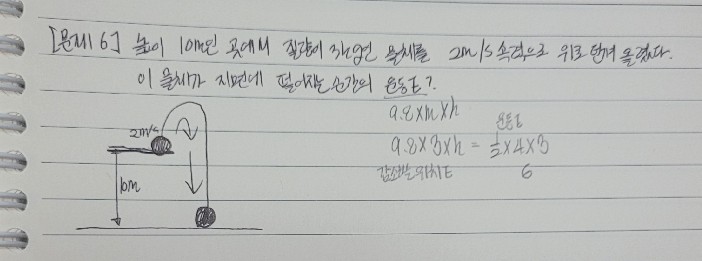 [문제 6] 높이 10m인 곳에서 질량이 3kg인 물체를 2m/s 속력으로 위로 던져 올렸다.
이 물체가 지면에 떨어지는 순간의 운동E?
9.8×m×h
운동E
9.8×3×h = ½×4×3
감소한 위치E
6
2m/s
10m